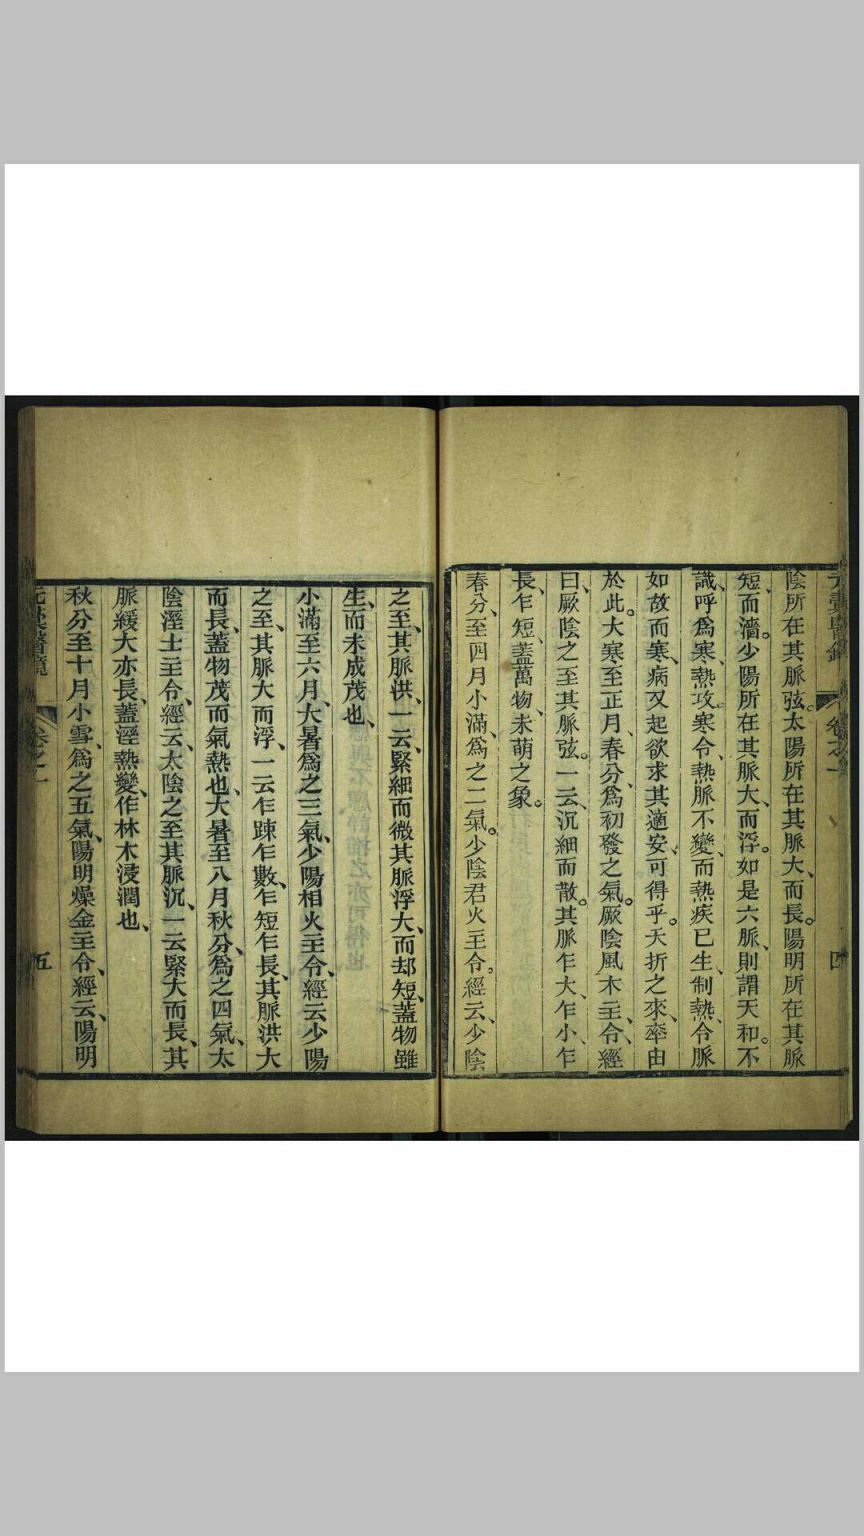 陰所在其脈弦。太陽所在其脈大、而長。陽明所在其脈
短、而濇。少陽所在其脈大、而浮。如是六脈、則謂天和。不
識、呼爲寒、熱、攻。寒令、熱脈不變、而熱疾已生、制熱、令脈
如故而寒、病又起、欲求其適安、可得乎。夭折之來、率由
於此。大寒至正月、春分、爲初發之氣。厥陰風木主令、經
曰、厥陰之至其脈弦。一云、沉細而散。其脈乍大、乍小、乍
長、乍短、蓋萬物、未萌之象。
春分、至四月小滿、爲之二氣。少陰君火主令。經云、少陰
之至、其脈洪、一云、緊細而微其脈浮大、而却短、蓋物雖
生、而未成茂也、
小滿至六月、大暑爲之三氣、少陽相火主令、經云少陽
之至、其脈大而浮、一云乍踈乍數、乍短乍長、其脈洪大
而長、蓋物茂而氣熱也、大暑至八月秋分、爲之四氣、太
陰溼土主令、經云、太陰之至其脈沉、一云緊大而長、其
脈緩大亦長、蓋溼熱變、作林木浸潤也、
秋分至十月小雪、爲之五氣、陽明燥金主令、經云、陽明
卷之一
四
五